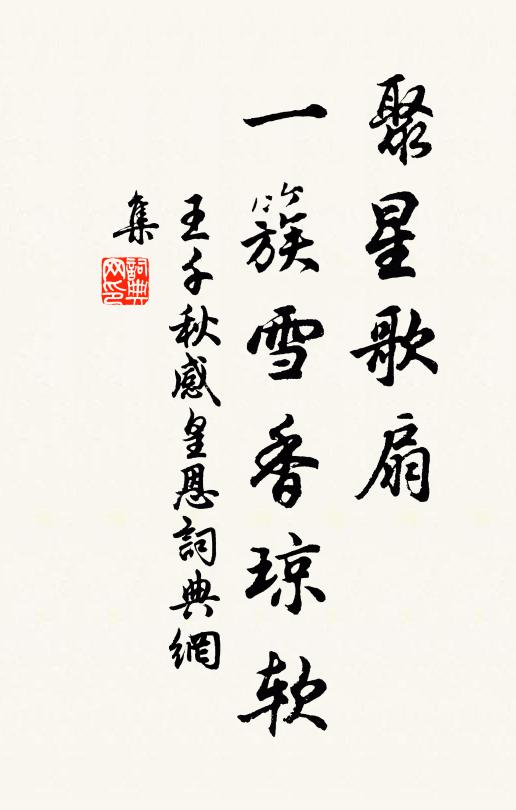 聚星歌扇
一簇雪香琼软
王千秋感皇恩詞典網
集
詞典
网印